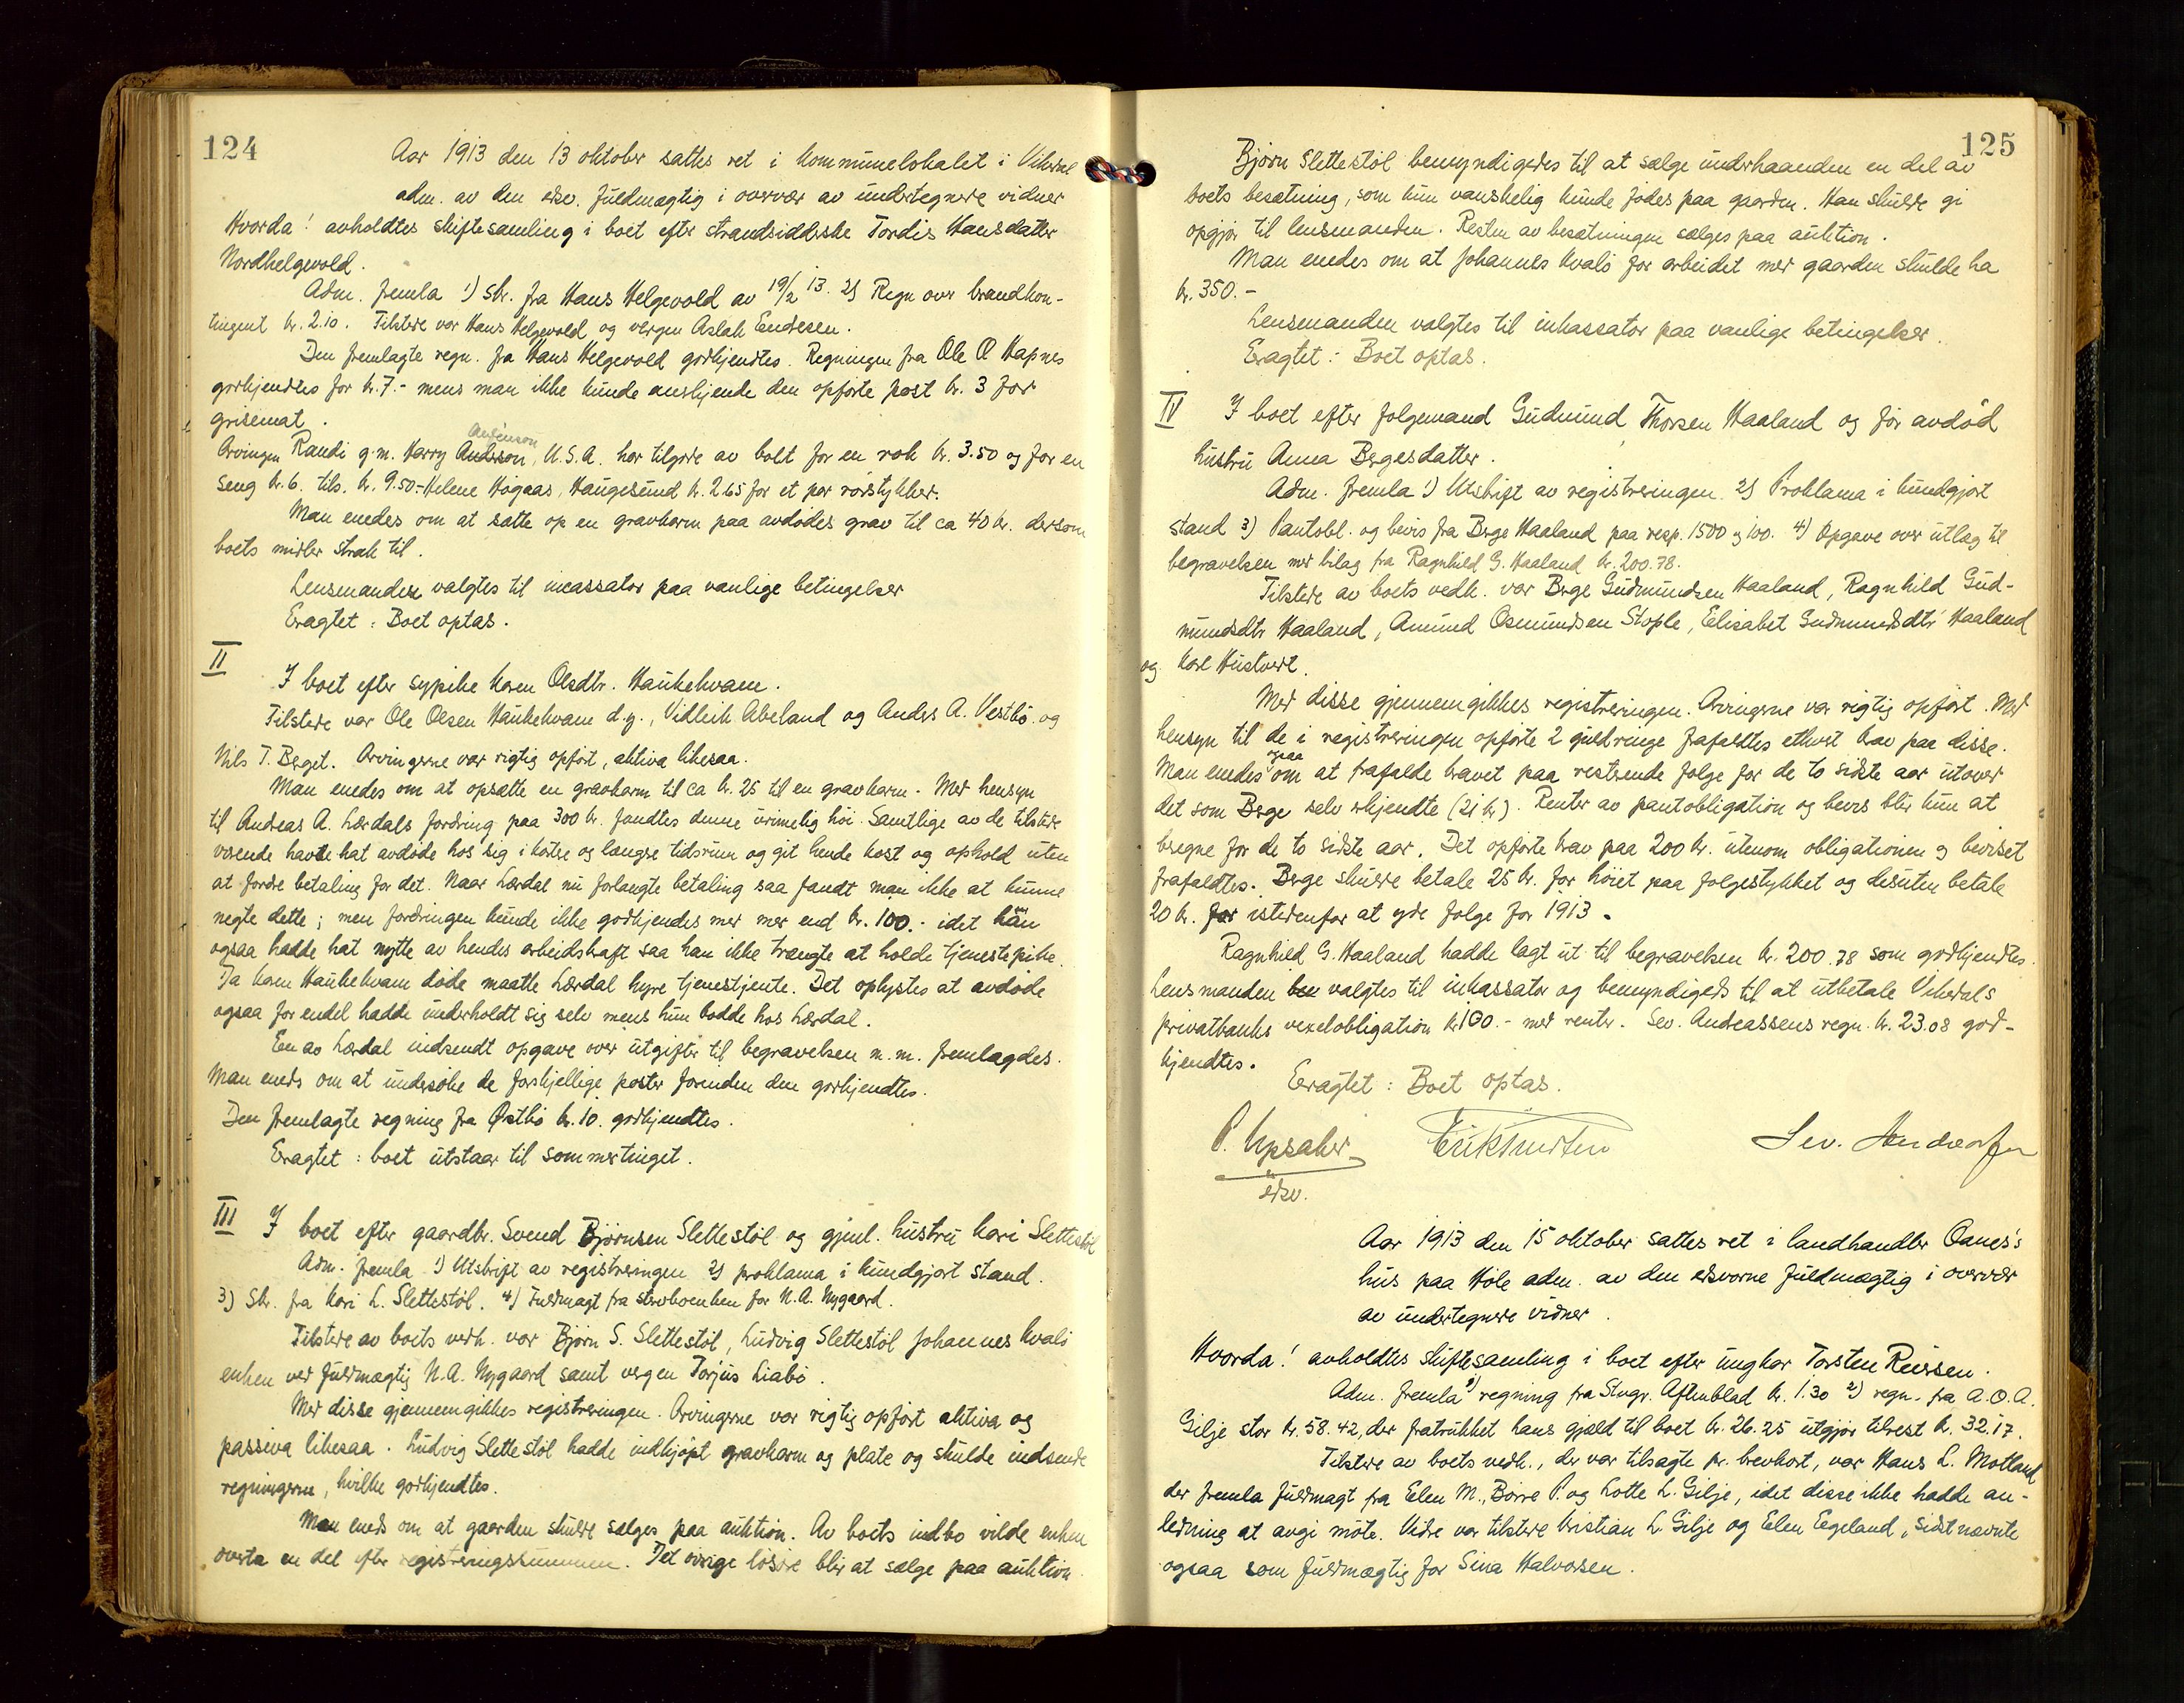 124
Aar 1913 den 13 oktober sattes ret i kommunelokalet i Vikedal
adm. av den edsv. fuldmægtig i overvær av undertegnede vidner
Hvorda! avholdtes skiftesamling i boet efter strandsidderske Tordis Hansdatter
Nordhelgevold.
Adm. fremla 1) Skr. fra Hans Helgevold av 19/2 13. 2) Regn over brandkon-
tingent kr. 2.10. Tilstede var Hans Helgevold og vergen Aslak Endresen.
Den fremlagte regn. fra Hans Helgevold godkjendtes. Regningen fra Ole O Hapnes
godkjendtes for kr. 7.- mens man ikke kunde anerkjende den opførte post kr. 3 for
grisemat.
Arvingen Randi g.m. Harry Anderson, U.S.A. har tilgode av bolt for en rok kr. 3.50 og for en
seng kr. 6. tils. kr. 9.50.- Helene Høgaas, Haugesund kr. 2.65 for et par rørstykker.
Man enedes om at sætte op en gravkarm paa avdødes grav til ca 40 kr. dersom
boets midler strak til.
Lensmanden valgtes til incassator paa vanlige betingelser
Eragtet: Boet optas.
II
I boet efter sypike Karen Olsdtr. Haukekvam.
Tilstede var Ole Olsen Haukekvam d.y., Vidleik Abeland og Anders A. Vestbø og
Nils T. Berget. Arvingerne var rigtig opført, aktiva likesaa.
Man enedes om at opsætte en gravkarm til ca kr. 25 til en gravkarm. Med hensyn
til Andreas A. Lærdals fordring paa 300 kr. fandtes denne urimelig høi. Samtlige av de tilstede
værende havde hat avdøde hos sig i kortre og længre tidsrum og git hende kost og ophold uten
at fordre betaling for det. Naar Lærdal nu forlangte betaling saa fandt man ikke at kunne
negte dette; men fordringen kunde ikke godkjendes med mer end kr. 100.- idet han
ogsaa hadde hat nytte av hendes arbeidskraft saa han ikke trængte at holde tjenestepike.
Da Karen Haukekvam døde maatte Lærdal hyre tjenestjente. Det oplystes at avdøde
ogsaa for endel hadde underholdt sig selv mens hun bodde hos Lærdal.
En av Lærdal indsendt opgave over utgifter til begravelsen m.m. fremlagdes.
Man eneds om at undersøke de forskjellige poster forinden den godkjendtes.
Den fremlagte regning fra Østbø kr. 10. godkjendtes.
Eragtet: boet utstaar til sommertinget.
III
I boet efter gaardbr. Svend Bjørnsen Slettestøl og gjenl. hustru Kari Slettestøl
Adm. fremla 1) Utskrift av registreringen 2) proklama i kundgjort stand.
3) Skr. fra Kari L. Slettestøl. 4) Fuldmagt fra stervboenken for N.A. Nygaard.
Tilstede av boets vedk. var Bjørn S. Slettestøl, Ludvig Slettestøl Johannes Kvalø
enken ved fuldmægtig N.A. Nygaard samt vergen Torjus Liabø.
Med disse gjennemgikkes registreringen. Arvingerne var rigtig opført aktiva og
passiva likesaa. Ludvig Slettestøl hadde indkjøpt gravkarm og plate og skulde indsende
regningerne, hvilke godkjendtes.
Man eneds om at gaarden skulde sælges paa auktion. Av boets indbo vilde enken
overta en del efter registreringssummen. Det øvrige løsøre blir at sælge paa auktion.
125
Bjørn Slettestøl bemyndigedes til at sælge underhaanden en del av
boets besætning, som kun vanskelig kunde fødes paa gaarden. Han skulde gi
opgjør til lensmanden. Resten av besætningen sælges paa auktion.
Man enedes om at Johannes Kvalø for arbeidet med gaarden skulde ha
kr. 350.-
Lensmanden valgtes til inkassator paa vanlige betingelser.
Eragtet: Boet optas.
IV I boet efter folgemand Gudmund Thorsen Haaland og før avdød
hustru Anna Bergesdatter.
Adm. fremla 1) Utskrift av registreringen. 2) Proklama i kundgjort
stand 3) Pantobl. og bevis fra Berge Haaland paa resp. 1500 og 100. 4) Opgave over utlæg til
begravelsen med bilag fra Ragnhild G. Haaland kr. 200.78.
Tilstede av boets vedk. var Berge Gudmundsen Haaland, Ragnhild Gud-
mundsdtr Haaland, Amund Osmundsen Stople, Elisabet Gudmundsdtr Haaland
og Kare Hustvedt.
Med disse gjennemgikkes registreringen. Arvingerne var rigtig opført. Med
hensyn til de i registreringen opførte 2 guldringe frafaldtes ethvert krav paa disse.
Man enedes ogsaa om at frafalde kravet paa resterende følge for de to sidste aar utover
det som Berge selv erkjendte (21 kr). Renter av pantobligation og bevis blir kun at
beregne for de to sidste aar. Det opførte krav paa 200 kr. utenom obligationen og beviset
frafaldtes. Berge skulde betale 25 kr. for høiet paa følgestykket og desuten betale
20 kr. for istedenfor at yde følge for 1913.
Ragnhild G. Haaland hadde lagt ut til begravelsen kr. 200.78 som godkjendtes.
Lensmanden valgtes til inkassator og bemyndigeds til at utbetale Vikedals
privatbanks vexelobligation kr 100.- med renter. Sev. Andreassens regn. kr. 23.08 god-
kjendtes.
Eragtet: Boet optas.
P. Upsaker
edsv.
Sev. Andreassen
Aar 1913 den 15 oktober sattes ret i landhandler Oanes's
hus paa Høle adm. av den edsvorne fuldmægtig i overvær
av undertegnede vidner.
Hvorda! avholdtes skiftesamling i boet efter ungkar Torsten Reiersen.
Adm. fremla 1) regning fra Stvgr. Aftenblad kr. 1.30 2) regn. fra A.O.A.
Gilje stor kr. 58.42, der fratrukket hans gjæld til boet kr. 26.25 utgjør tilrest kr. 32.17.
Tilstede av boets vedk., der var tilsagte pr. brevkort, var Hans L. Motland
der fremla fuldmagt fra Elen M., Børre P. og Lotte L. Gilje, idet disse ikke hadde an-
ledning at avgi møte. Videre var tilstede Kristian L. Gilje og Elen Egeland, sidstnævnte
ogsaa som fuldmægtig for Sina Halvorsen.